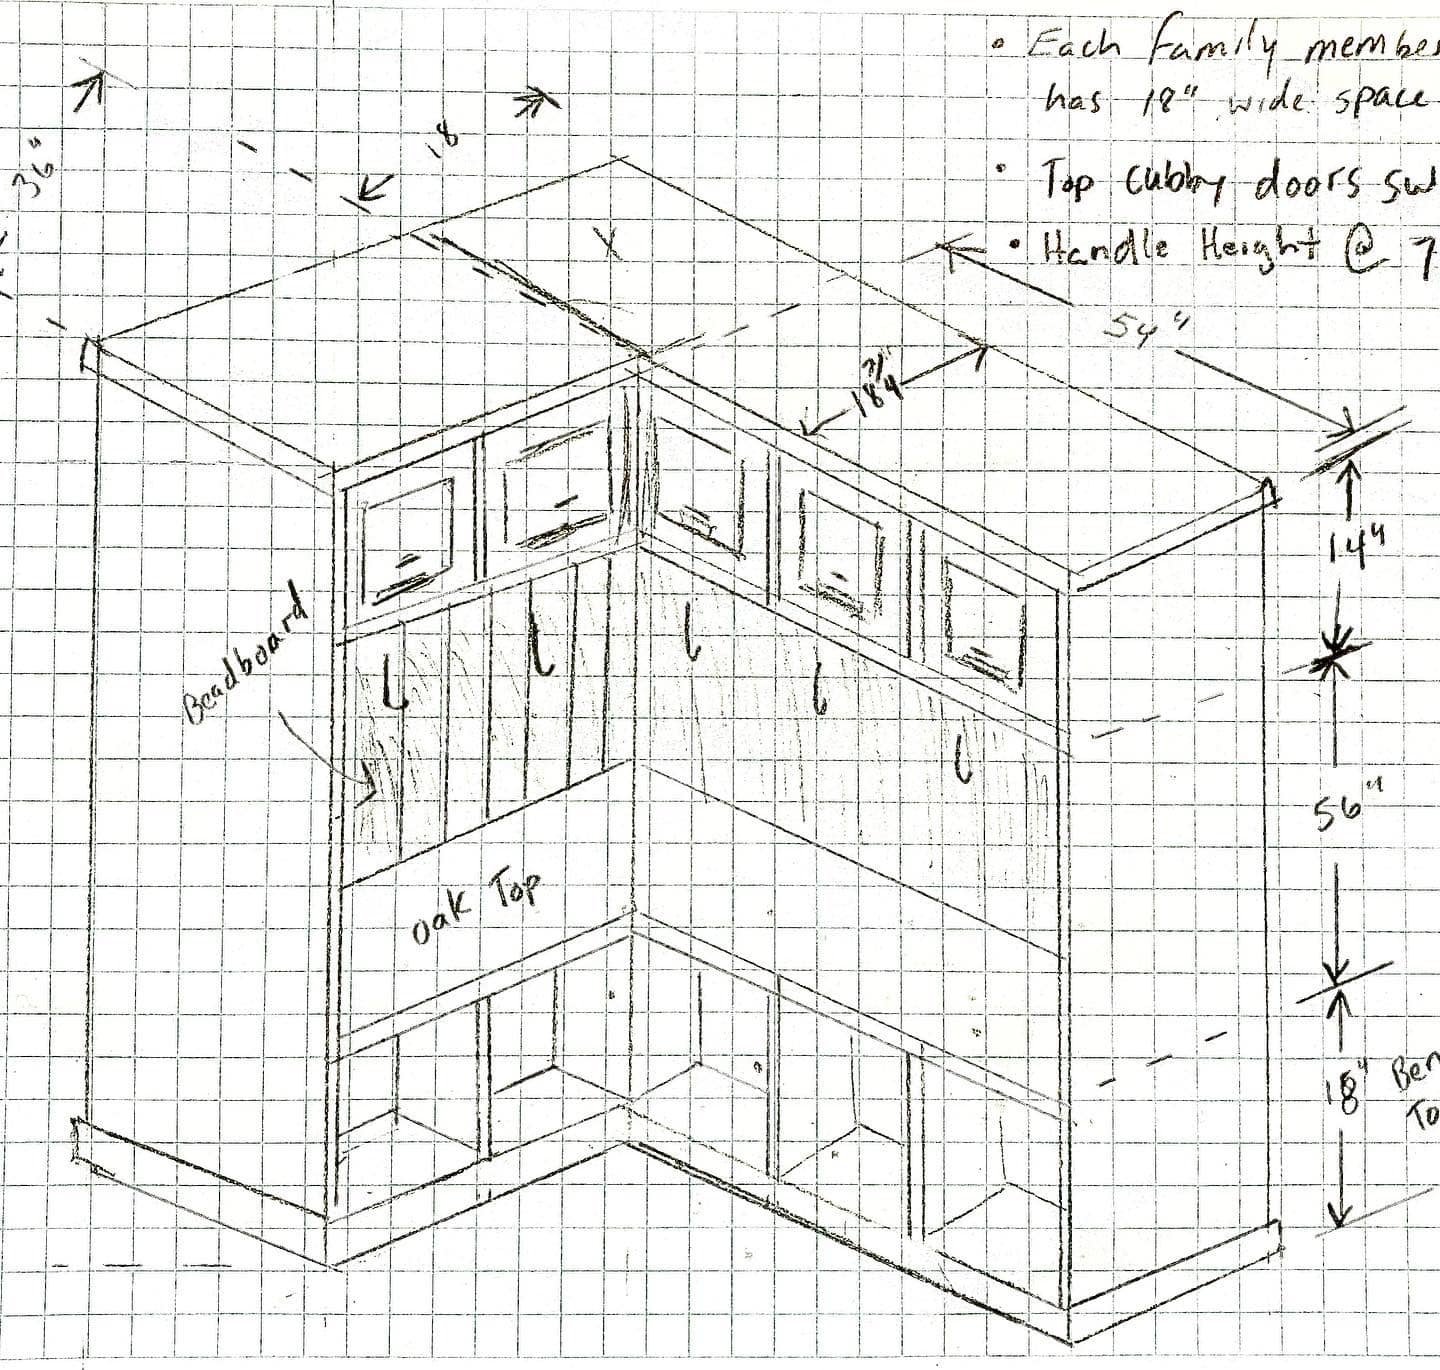 • Each family member
has 18" wide space
• Top cubby doors sw
• Handle Height @ 7
36"
18
54"
18 3/4"
14"
Beadboard
56"
Oak Top
18" Ben
To
X